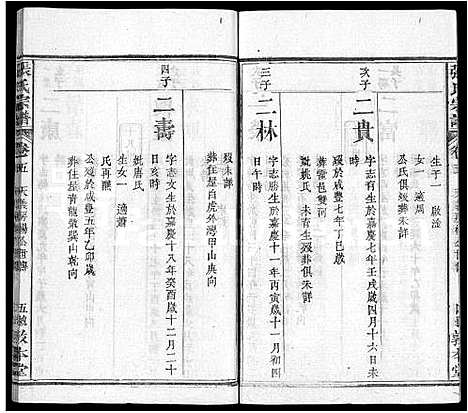 張氏宗譜
生子一 啟洽
女一 適周
公氏俱葬
次子
二貴
字志友生於嘉慶七年壬戌歲四月十六日未
時歿於咸豐七年丁巳歲
妣姚氏 未有生歿葬俱朱詳
葬住邑雙河
三子
二林
字志勝生於嘉慶十一年丙寅歲十二月初十
日午時
歿未詳
葬住屋白虎外灣甲山庚向
四子
二壽
字志文生於嘉慶十八年癸酉歲十二月二十
日亥時
妣唐氏
生女一 適蕭
氏再醮
公歿於咸豐五年乙卯歲
葬住屋青龍嘴巽山乾向
張氏宗譜
卷五
敦本堂